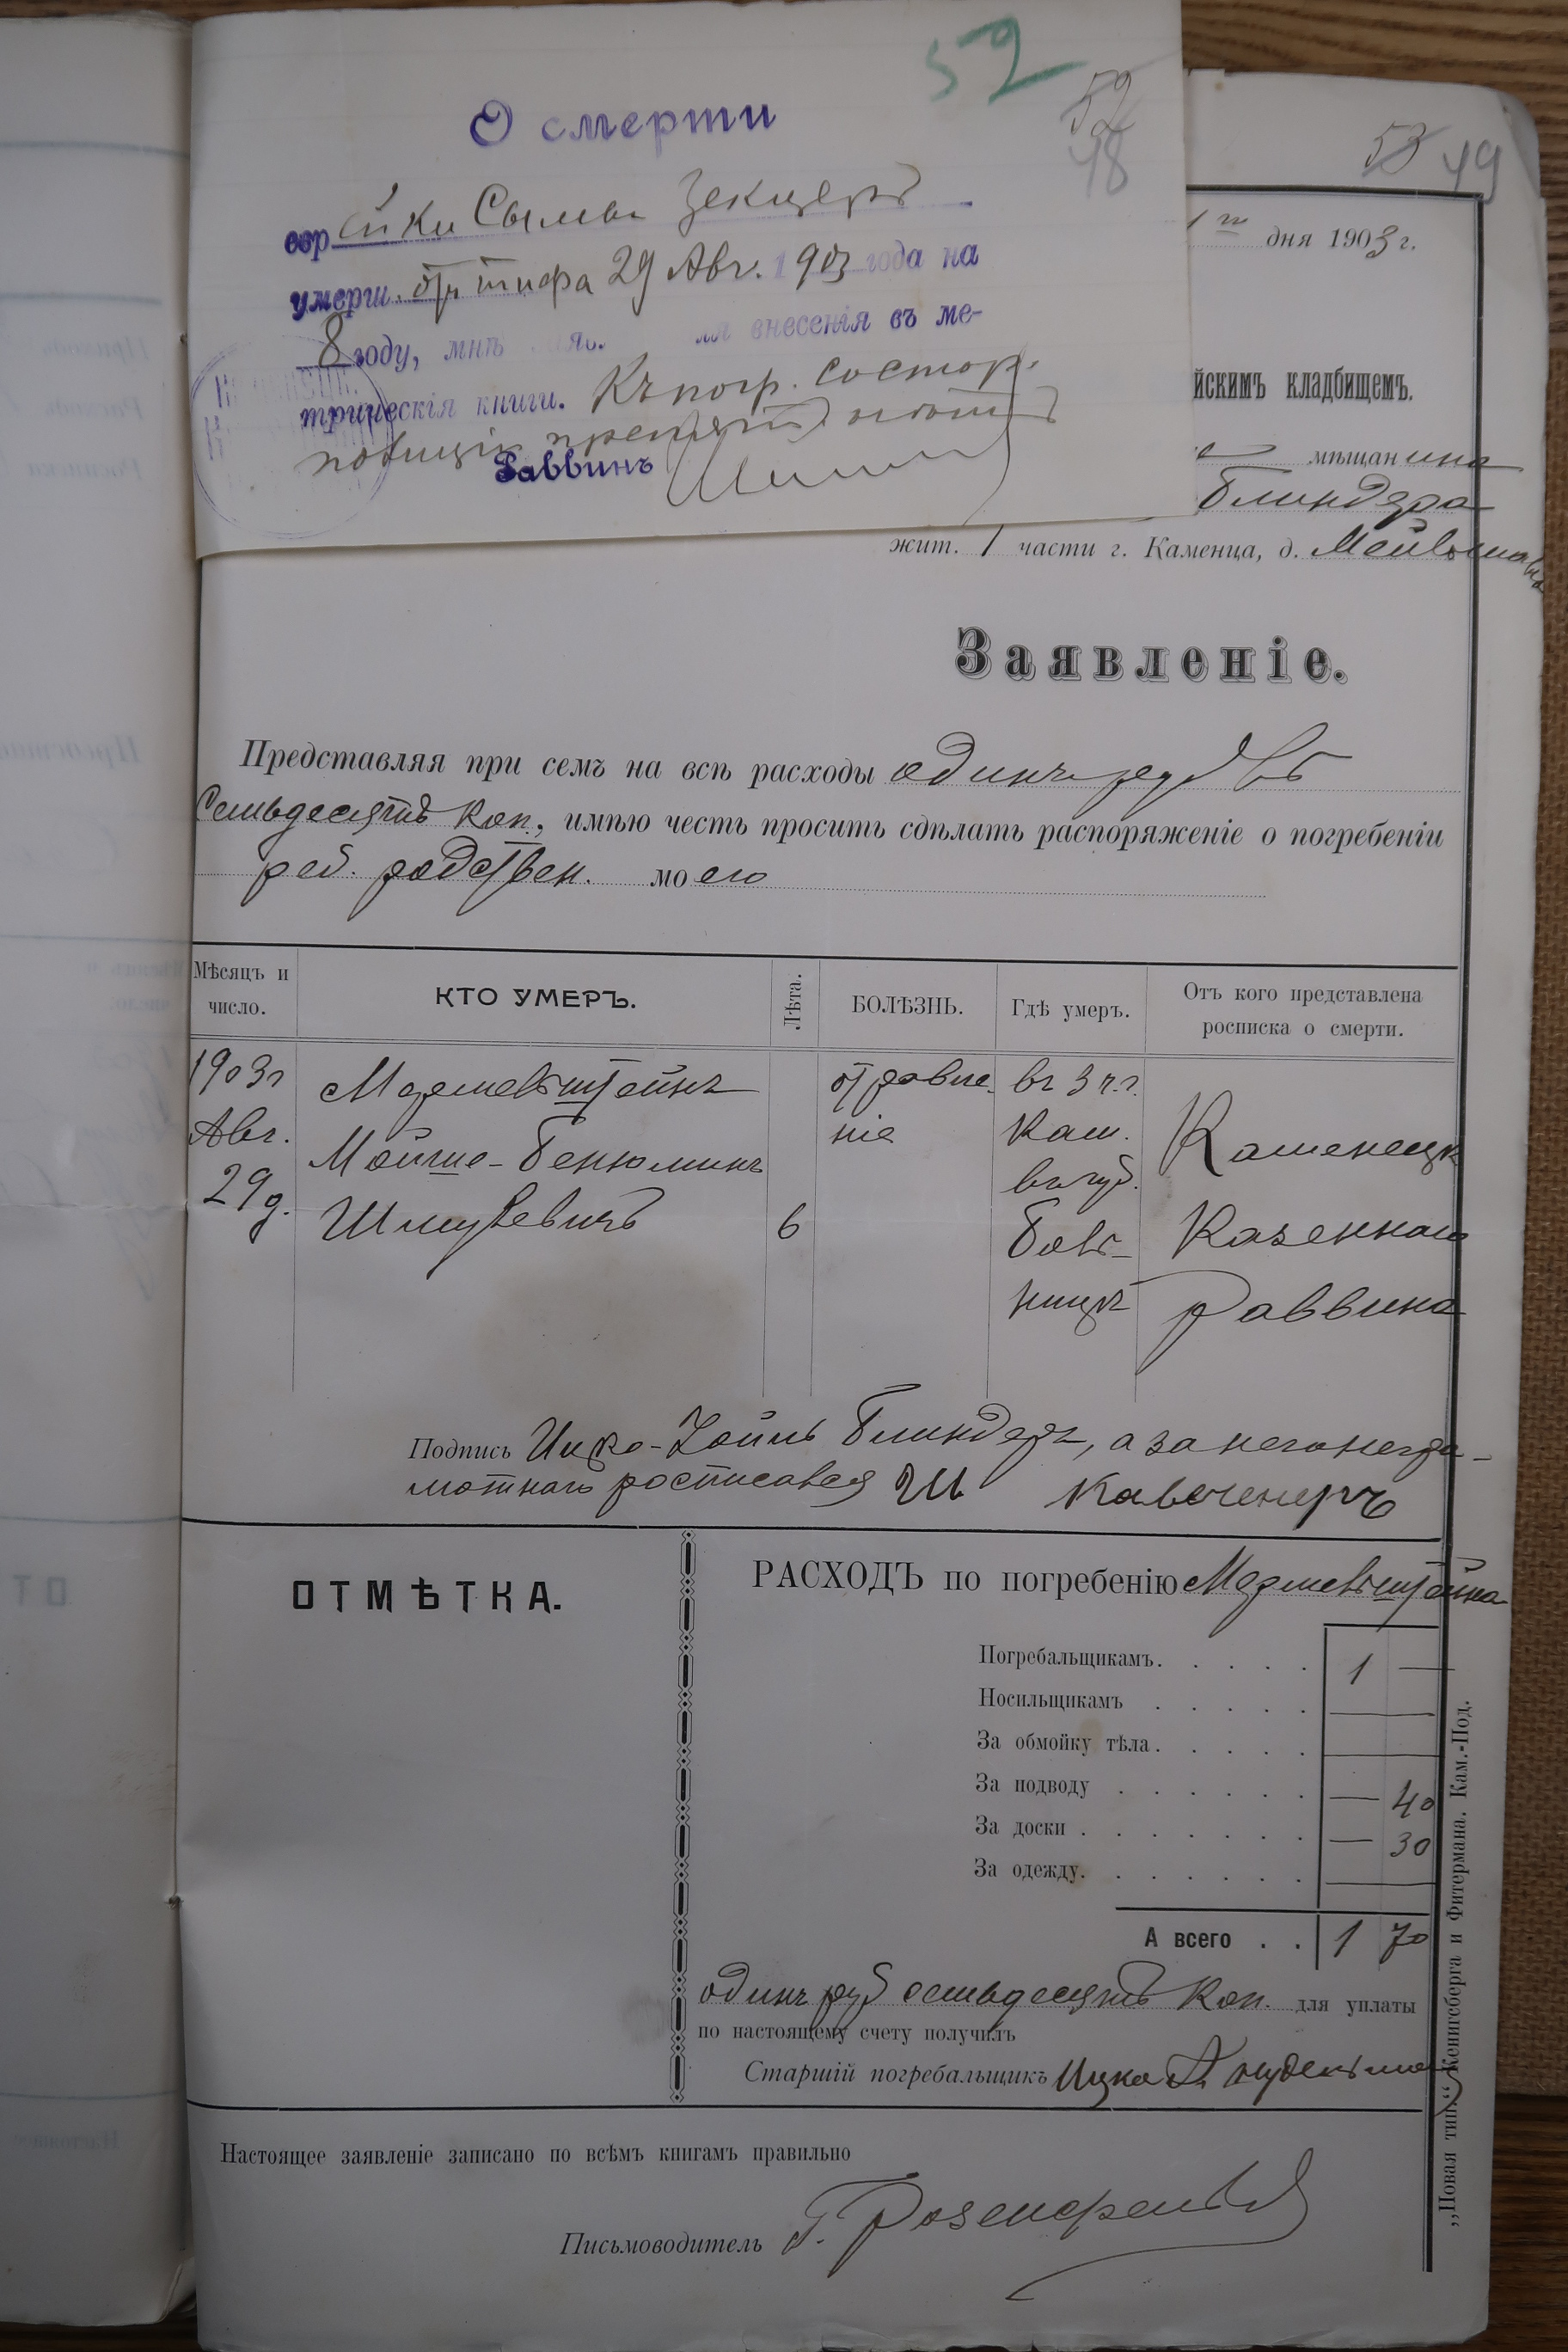 52
О смерти
52
48
53 49
евр ейки Сымы Зекцеръ
умерш. отъ тифа 29 Авг. 1903 года на
8 году, мнѣ внесенія въ ме-
трическія книги. Къ погр. со стор.
полиціи препят. нѣтъ
Раввинъ
1го дня 1903 г.
йскимъ кладбищемъ.
мѣщанина
Блиндера
жит. 1 части г. Каменца, д.
Заявленіе.
Представляя при семъ на всѣ расходы одинъ рубль
Семьдесятъ коп., имѣю честь просить сдѣлать распоряженіе о погребеніи
реб. родствен. моего
Мѣсяцъ и число.
КТО УМЕРЪ.
Лѣта.
БОЛѢЗНЬ.
Гдѣ умеръ.
Отъ кого представлена росписка о смерти.
1903 г
Авг.
29 д.
Мармельштейнъ
Мойше-Бенюминъ
Шмулевичъ
6
отравле-
ніе
въ 3 ч. г.
Кам.
въ губ.
боль-
ницѣ
Каменецк
Казеннаго
Раввина
Подпись Ицко-Хаимъ Блиндеръ, а за него негра-
мотнаго росписался Ш
ОТМѢТКА.
РАСХОДЪ по погребенію Мармельштейна
Погребальщикамъ. 1 —
Носильщикамъ —
За обмойку тѣла. —
За подводу — 40
За доски — 30
За одежду. —
А всего 1 70
одинъ руб семьдесятъ коп. для уплаты
по настоящему счету получилъ
Старшій погребальщикъ Ицко
Настоящее заявленіе записано по всѣмъ книгамъ правильно
Письмоводитель Г. Розенфельд
„Новая тип." Кенигсберга и Фитермана. Кам.-Под.